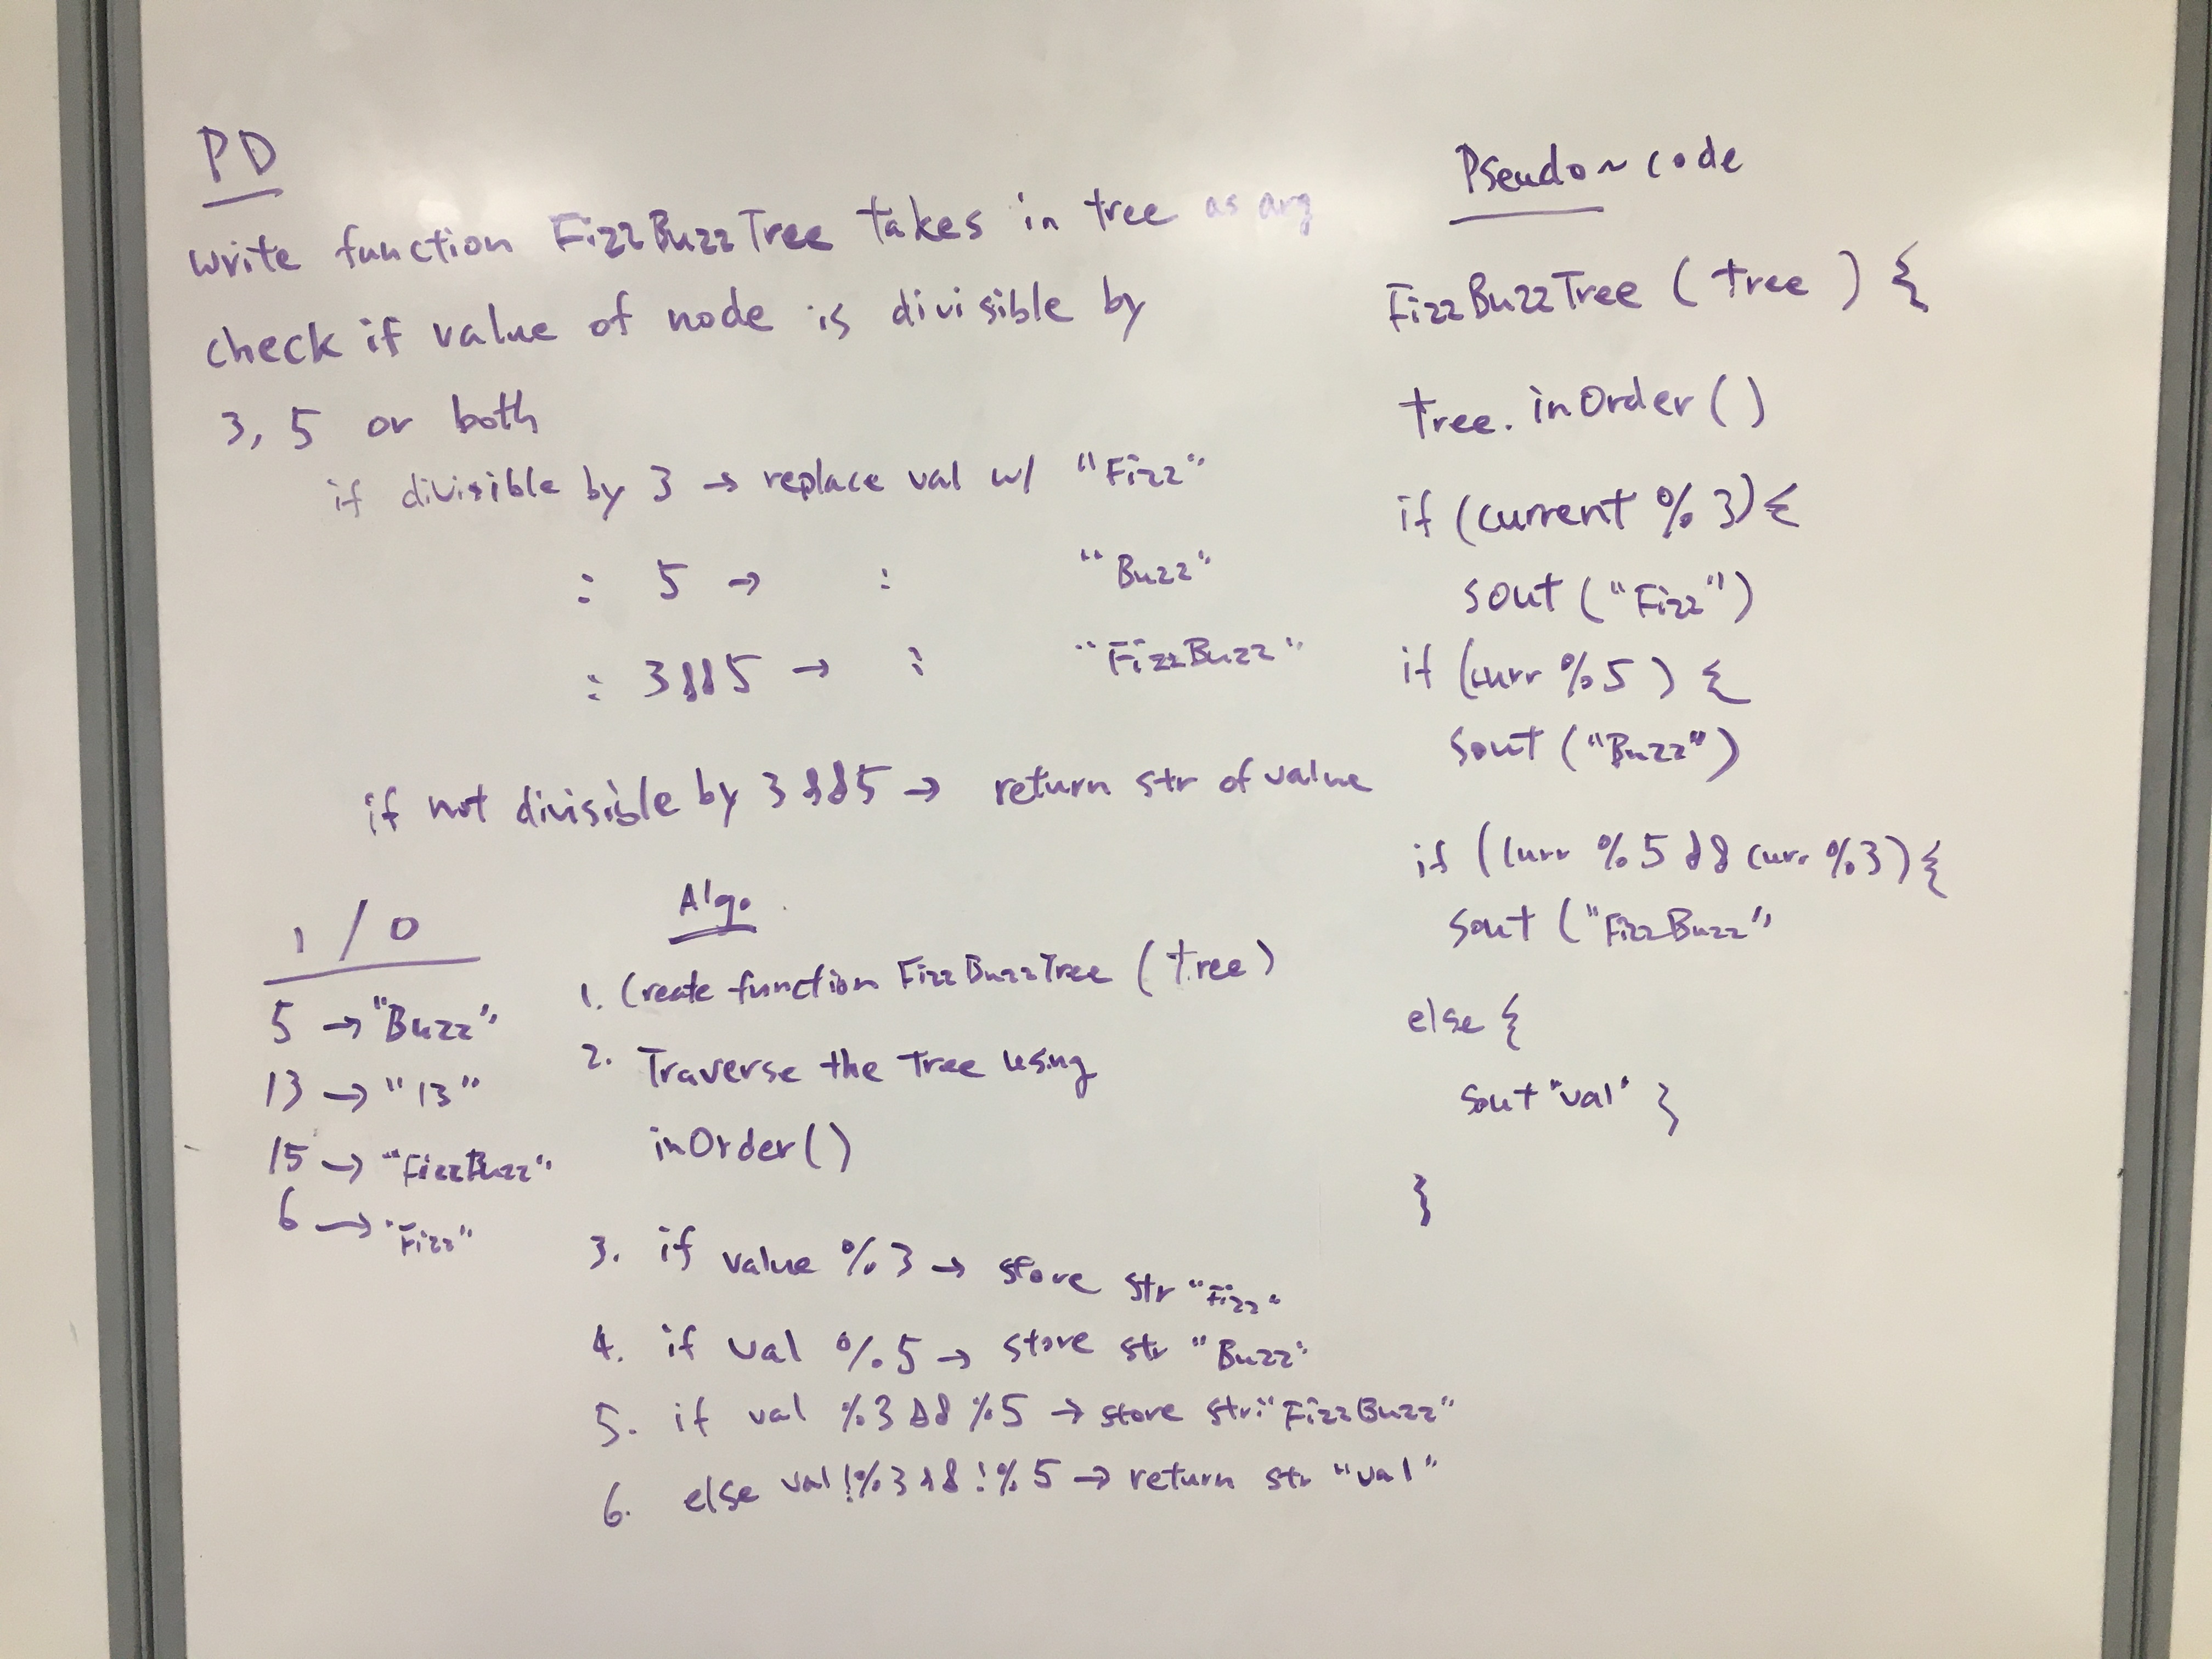 PD
write function FizzBuzzTree takes in tree as arg
check if value of node is divisible by
3, 5 or both
if divisible by 3 → replace val w/ "Fizz"
: 5 → : "Buzz"
: 3 && 5 → : "FizzBuzz"
if not divisible by 3 && 5 → return str of value
I / O
5 → "Buzz"
13 → "13"
15 → "FizzBuzz"
6 → "Fizz"
Algo
1. Create function FizzBuzzTree (tree)
2. Traverse the tree using
inOrder()
3. if value % 3 → store str "Fizz"
4. if val % 5 → store str "Buzz"
5. if val % 3 && % 5 → store str: "FizzBuzz"
6. else val !% 3 && !% 5 → return str "val"
Pseudo~code
FizzBuzzTree (tree) {
tree. inOrder()
if (current % 3) {
sout ("Fizz")
if (curr % 5) {
sout ("Buzz")
if (curr % 5 && curr % 3) {
sout ("FizzBuzz"
else {
sout "val" }
}